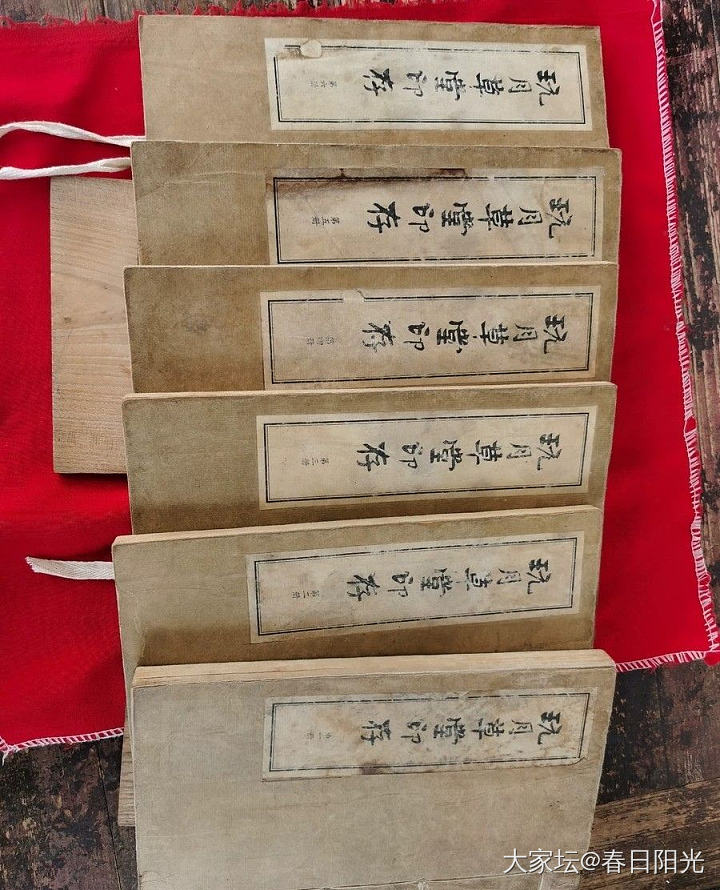 玩月草堂印存
第六册
玩月草堂印存
第五册
玩月草堂印存
第四册
玩月草堂印存
第三册
玩月草堂印存
第二册
玩月草堂印存
第一册
大家坛@春日阳光